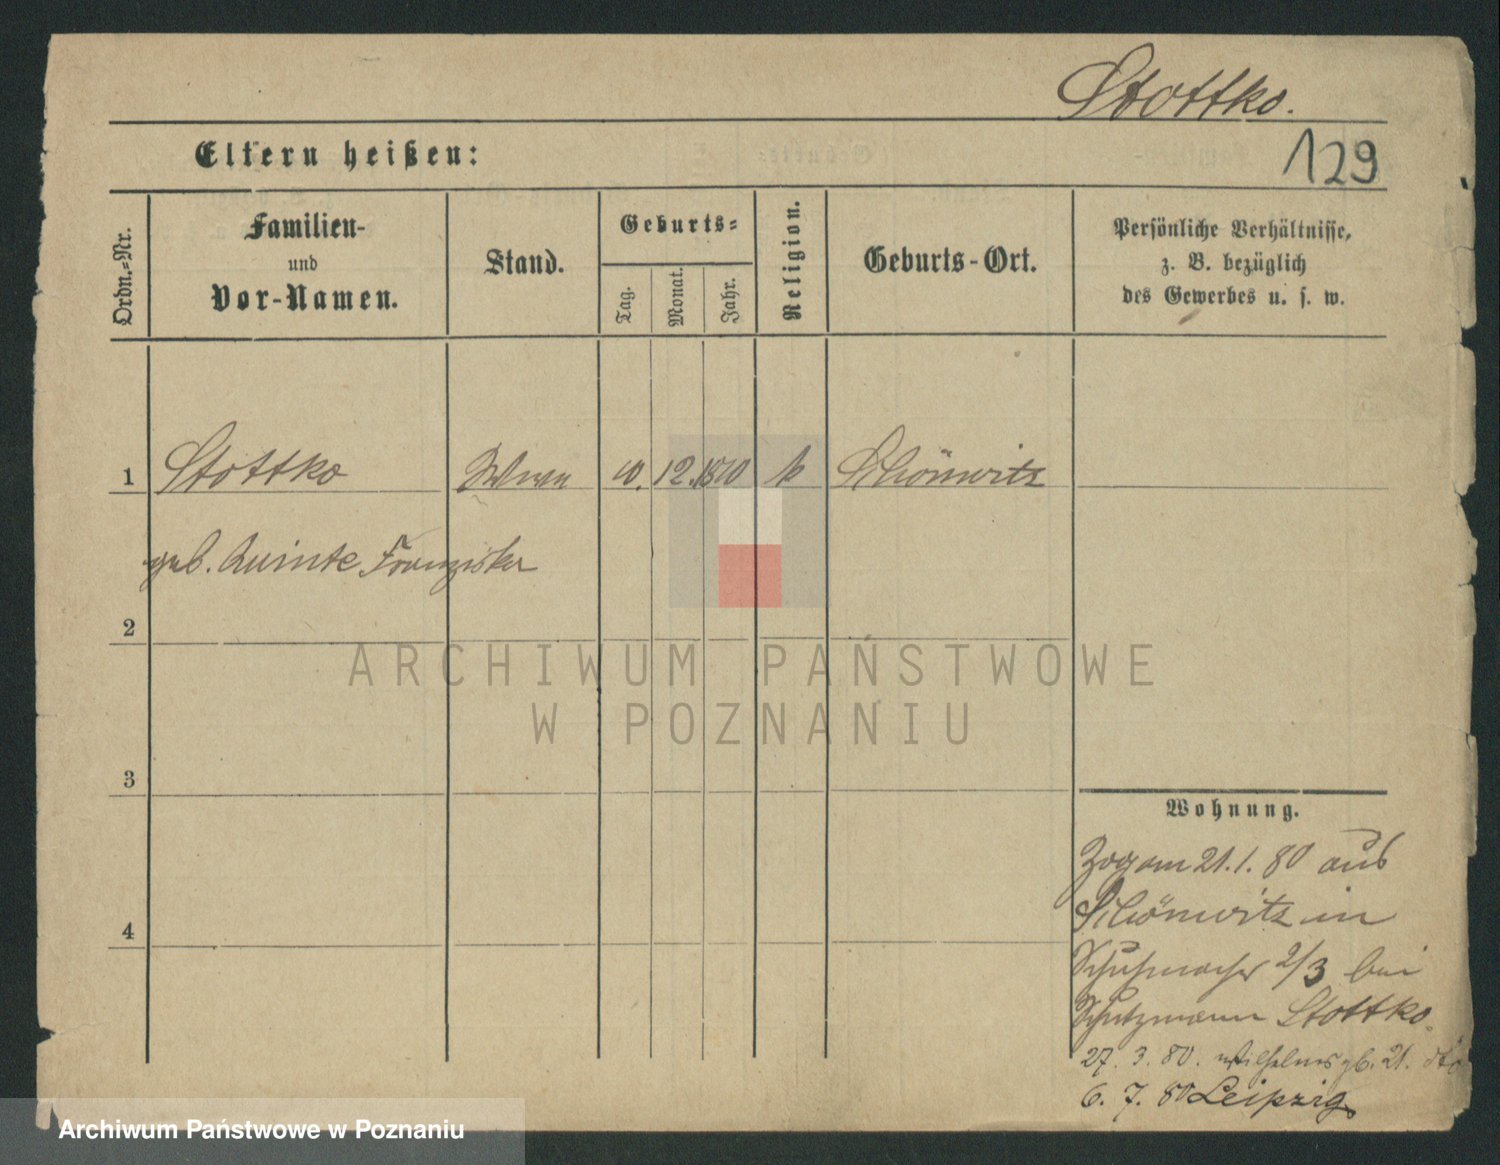 Stottko.
Eltern heißen:
129
Ordn.-Nr.
Familien-
und
Vor-Namen.
Stand.
Geburts-
Tag.
Monat.
Jahr.
Religion.
Geburts-Ort.
Persönliche Verhältnisse,
z. B. bezüglich
des Gewerbes u. s. w.
1 Stottko 10. 12. 1810 k Schönwitz
geb. Quinte Franziska
2
3
4
Wohnung.
Zog am 21.1.80 aus
Schönwitz in
Schuhmacher 2/3 bei
Schutzmann Stottko.
27. 3. 80. Wilhelmsgb. 21. dto
6. 7. 80 Leipzig
ARCHIWUM PAŃSTWOWE
W POZNANIU
Archiwum Państwowe w Poznaniu